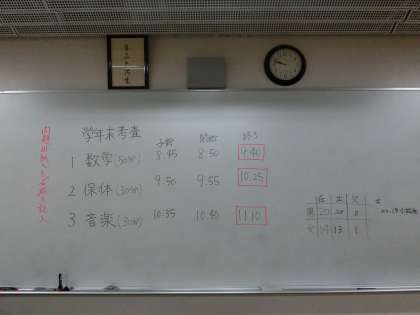 学年末考査
予鈴 開始 終了
1 数学(50分) 8:45 8:50 9:40
2 保体(30分) 9:50 9:55 10:25
3 音楽(30分) 10:35 10:40 11:10
在 出 欠
男 20 20 0
女 14 13 1